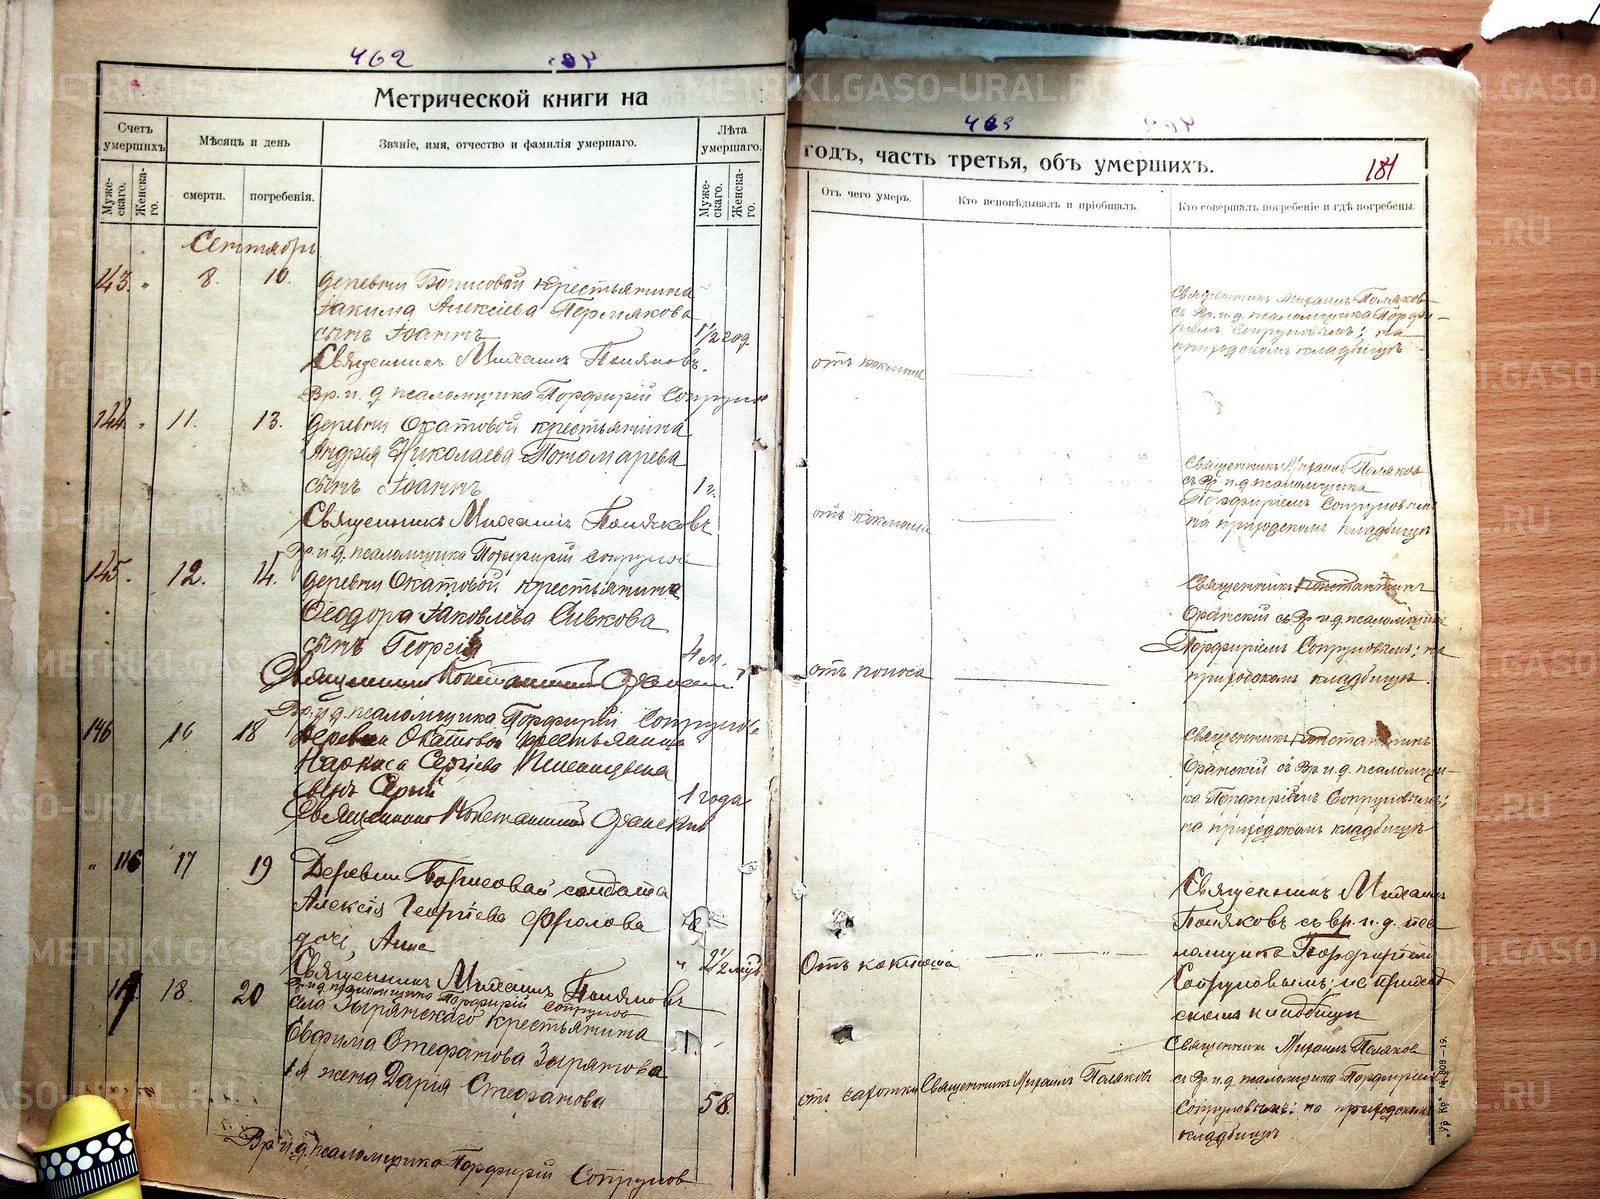 462
Метрической книги на
Счетъ умершихъ
Мѣсяцъ и день
Званіе, имя, отчество и фамилія умершаго.
Лѣта умершаго.
Муже-скаго.
Женска-го.
смерти.
погребенія.
Муже-скаго.
Женска-го.
Сентябрь
143. " 8. 10. деревни Борисовой крестьянина
Іакима Алексіева Пермякова
сынъ Іоаннъ 1 1/2 год.
Священникъ Михаилъ Поляковъ.
Вр. и. д. псаломщика Порфирій Сопрунов
144. " 11. 13. деревни Окатовой крестьянина
Андрея Николаева Пономарева
сынъ Іоаннъ 1 г.
Священникъ Михаилъ Поляковъ
Вр. и. д. псаломщика Порфирій Сопрунов
145. 12. 14. деревни Окатовой крестьянина
Ѳеодора Іаковлева Сивкова
сынъ Георгій 4 м.
Священникъ Константинъ
Вр. и. д. псаломщика Порфирій Сопрунов
146 16 18 Деревни Окатовой крестьянина
Наркиса Сергіева
сынъ 1 года
Священникъ Константинъ
" 116 17 19 Деревни Борисовой солдата
Алексія Георгіева Фролова
дочь Анна " 2 1/2 мѣс.
Священникъ Михаилъ Поляковъ
Вр. и. д. псаломщика Порфирій Сопрунов
117 18. 20 села Зырянскаго крестьянина
Евфима Стефанова Зырянова
1я жена Дарія Стефанова 58.
Вр. и. д. псаломщика Порфирій Сопрунов
463
годъ, часть третья, объ умершихъ.
181
Отъ чего умеръ.
Кто исповѣдывалъ и пріобщалъ.
Кто совершалъ погребеніе и гдѣ погребены.
отъ коклюша
Священникъ Михаилъ Поляков
съ Вр. и. д. псаломщика Порфи-
ріемъ Сопруновымъ; на
приходскомъ кладбищѣ
отъ коклюша
Священникъ Михаилъ Поляков
съ Вр. и. д. псаломщика
Порфиріемъ Сопруновымъ
на приходскомъ кладбищѣ
отъ поноса
Священникъ Константинъ
съ Вр. и. д. псаломщика
Порфиріемъ Сопруновымъ; на
приходскомъ кладбищѣ.
Священникъ Константинъ
съ Вр. и. д. псаломщи-
ка Порфиріемъ Сопруновымъ;
на приходскомъ кладбищѣ
Отъ коклюша
Священникъ Михаилъ
Поляковъ съ вр. и. д. пса
ломщика Порфиріем
Сопруновымъ; на приход
скомъ кладбищѣ
от чахотки Священникъ Михаилъ Поляковъ
Священник Михаилъ Поляков
съ Вр. и. д. псаломщика Порфиріем
Сопруновымъ: на приходском
кладбищѣ.
METRIKI.GASO-URAL.RU